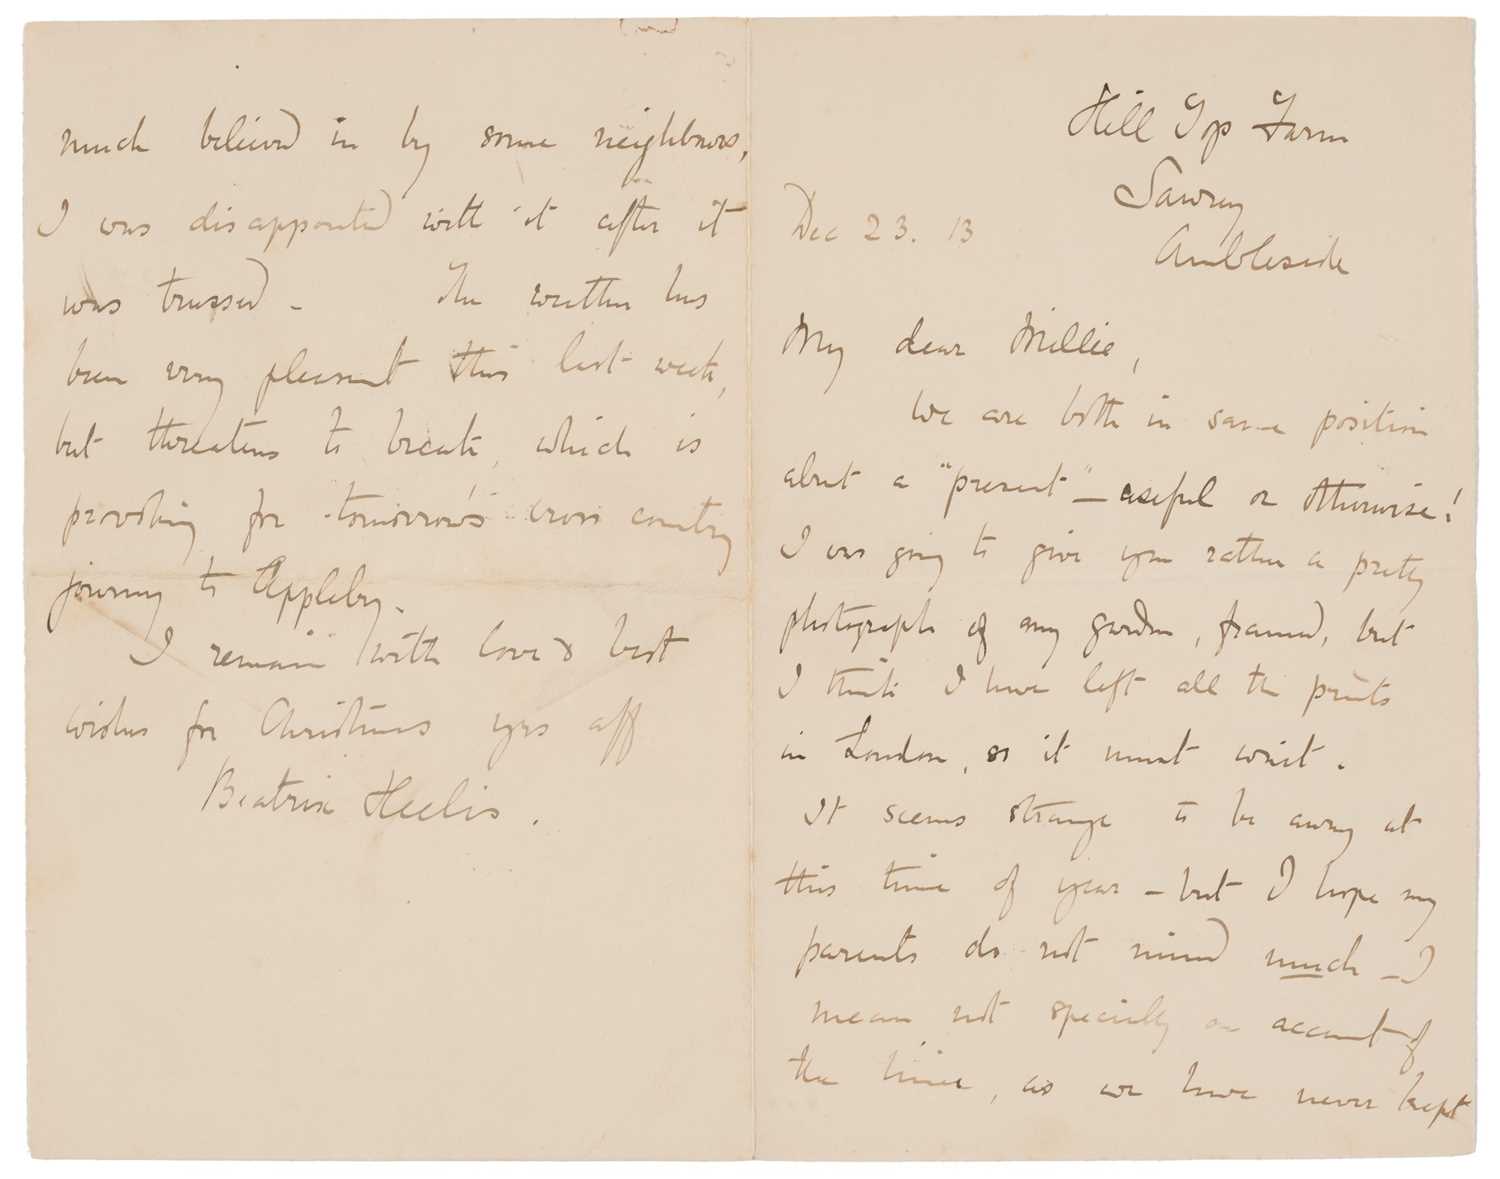 Hill Top Farm
Sawrey
Dec 23. 13
Ambleside
My dear Millie,
We are both in same position
about a "present" - useful or otherwise!
I was going to give you rather a pretty
photograph of my garden, framed, but
I think I have left all the prints
in London, so it must wait.
It seems strange to be away at
this time of year - but I hope my
parents do not mind much - I
mean not specially on account of
the time, as we have never kept
much believed in by some neighbours,
I was disappointed with it after it
was trussed - The weather has
been very pleasant this last week,
but threatens to break, which is
provoking for tomorrow's cross country
journey to Appleby.
I remain with love & best
wishes for Christmas yrs aff
Beatrix Heelis.